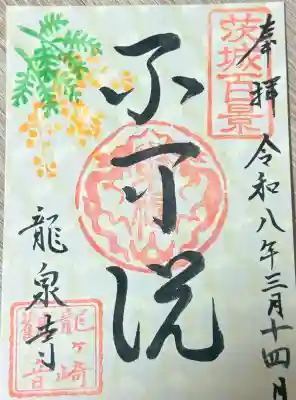 奉拝
令和八年三月十四日
茨城百景
不可説
龍泉寺
龍ヶ崎
観音